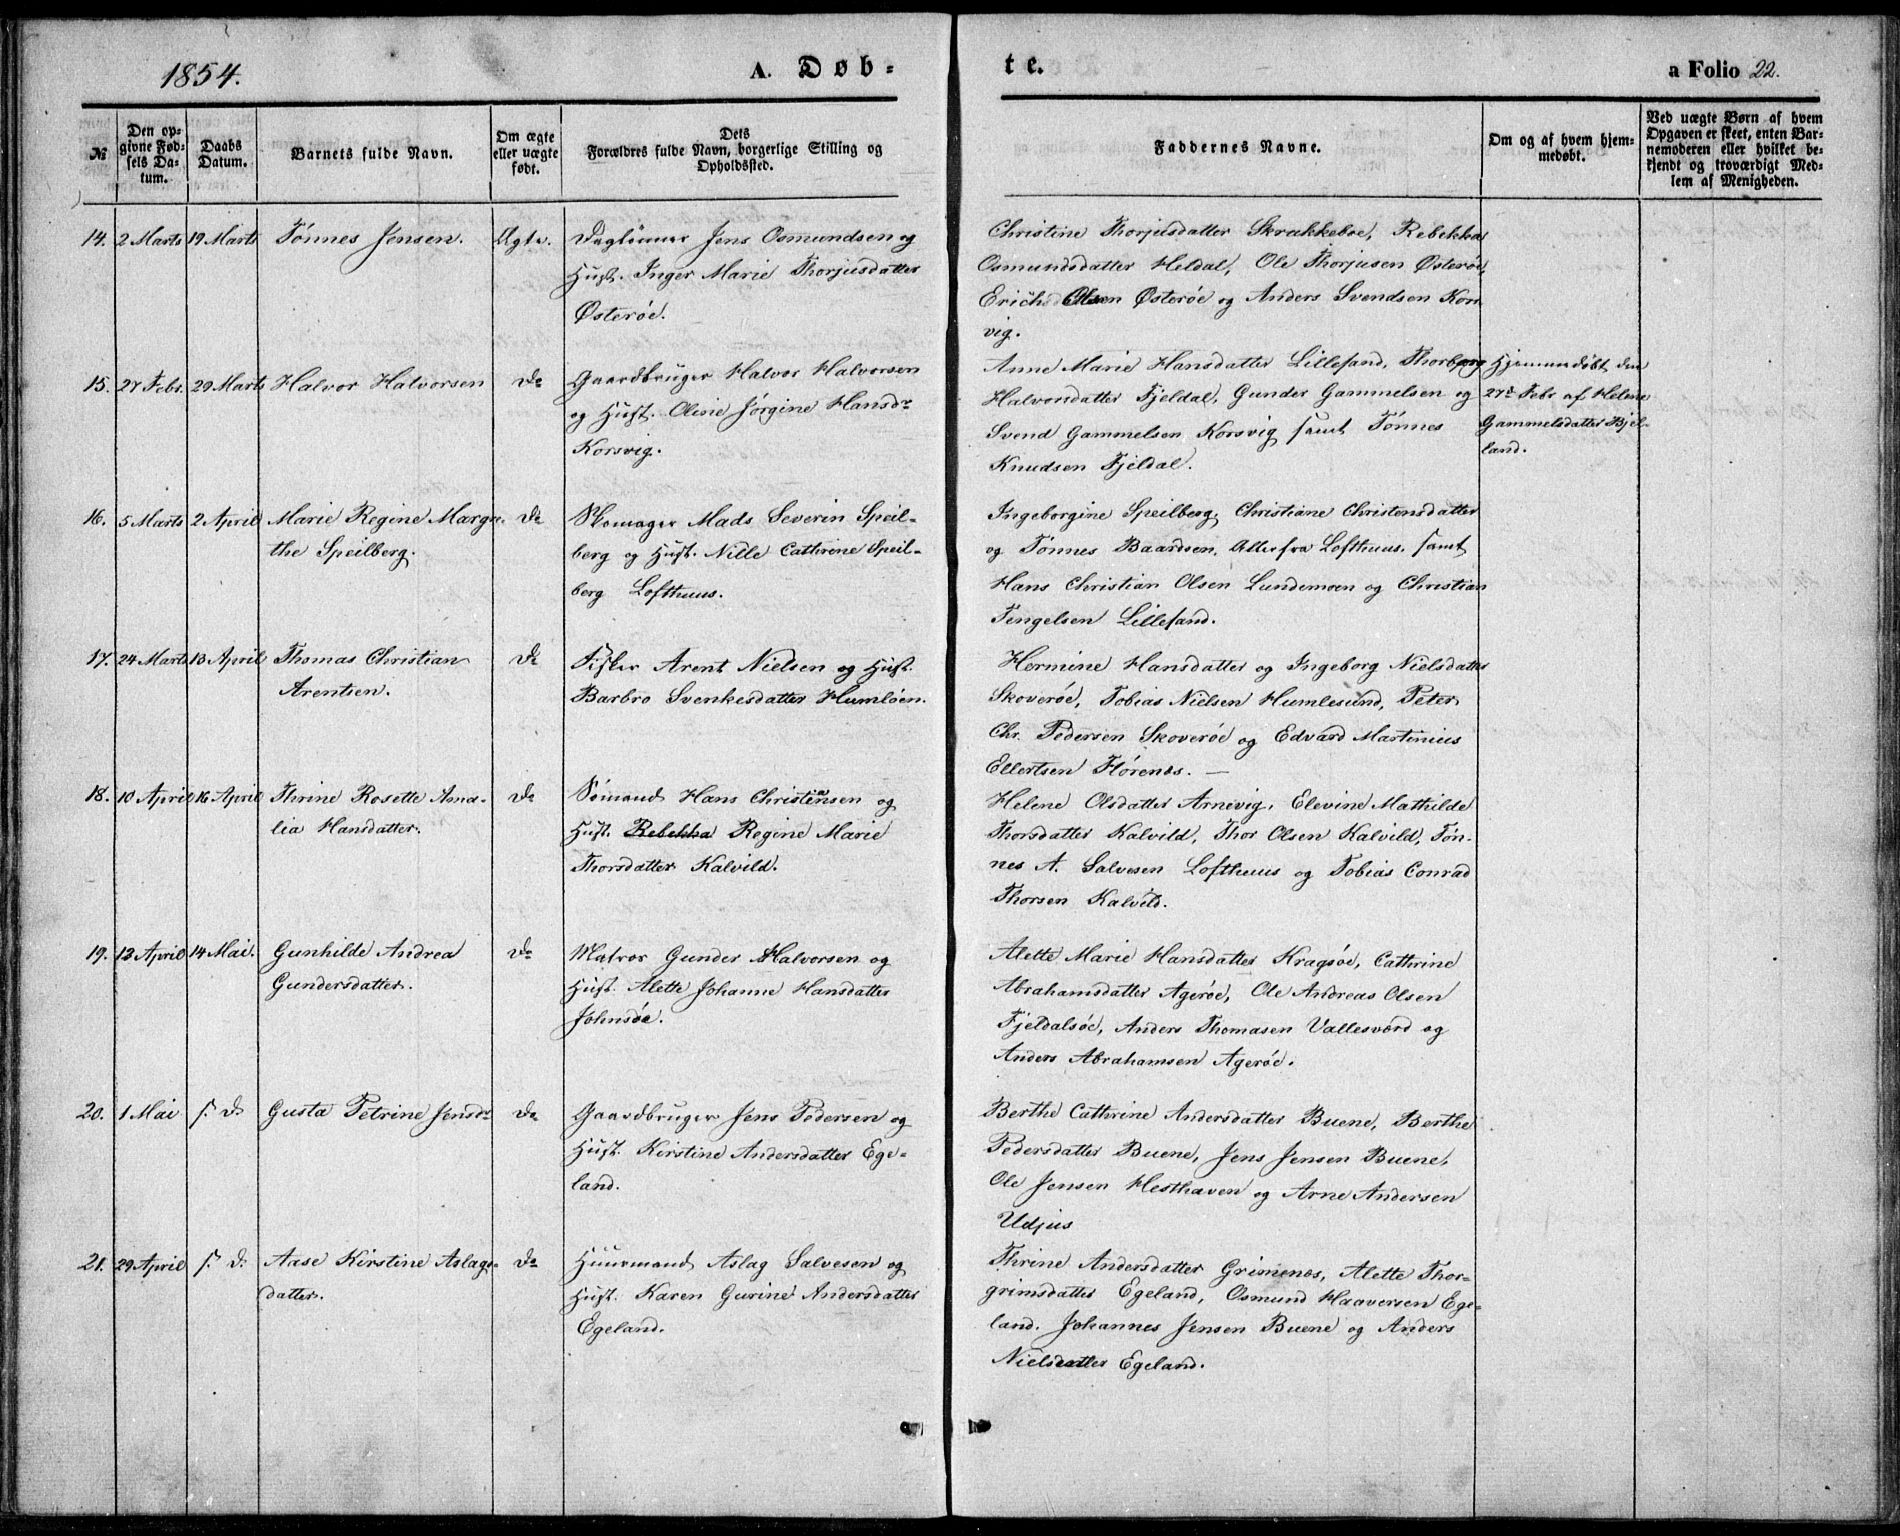 1854.
A. Døb-
te.
a Folio 22.
№
Den op-
givne Fød-
sels Da-
tum.
Daabs
Datum.
Barnets fulde Navn.
Om ægte
eller uægte
født.
Dets
Forældres fulde Navn, borgerlige Stilling og
Opholdssted.
Faddernes Navne.
Om og af hvem hjem-
medøbt.
Ved uægte Børn af hvem
Opgaven er skeet, enten Bar-
nemoderen eller hvilket be-
kjendt og troværdigt Med-
lem af Menigheden.
14. 2 Marts 19 Marts Tønnes Jensen. Ægte. Daglønner Jens Osmundsen og
Hust. Inger Marie Thorjusdatter
Østerøe.
Christine Thorjusdatter Skrakkeboe, Rebekka
Osmundsdatter Heldal, Ole Thorjusen Østerøe,
Erich Olsen Østerøe og Anders Svendsen Kors
vig.
15. 27 Febr. 29 Marts Halvor Halvorsen Do Gaardbruger Halvor Halvorsen
og Hust. Oline Jørgine Hansdr
Korsvig.
Anne Marie Hansdatter Lillesand, Thorborg
Halvorsdatter Fjeldal, Gunder Gammelsen og
Svend Gammelsen Korsvig samt Tønnes
Knudsen Fjeldal.
Hjemmedøbt den
27de Febr af Helene
Gammelsdatter Bjel-
land.
16. 5 Marts 2 April Marie Regine Margre- Do Skomager Mads Severin Speil-
the Speilberg.
berg og Hust. Nille Cathrine Speil-
berg Lofthuus.
Ingeborgine Speilberg, Christiane Christensdatter
og Tønnes Baardsen, Alle fra Lofthuus, samt
Hans Christian Olsen Lundemoen og Christian
Tengelsen Lillesand.
17. 24 Marts 13 April Thomas Christian Do Fisker Arent Nielsen og Hust.
Arentsen.
Barbro Svenkesdatter Humløen.
Hermine Hansdatter og Ingeborg Nielsdatter
Skoverøe, Tobias Nielsen Humlesund, Peter
Chr. Pedersen Skoverøe og Edvard Martinius
Ellertsen Flørenes. —
18. 10 April 16 April Thrine Rosette Ama- Do Sømand Hans Christiansen og
lia Hansdatter.
Hust. Rebekka Regine Marie
Thorsdatter Kalvild.
Helene Olsdatter Arnevig, Elevine Mathilde
Thorsdatter Kalvild, Thor Olsen Kalvild, Tøn-
nes A. Salvesen Lofthuus og Tobias Conrad
Thorsen Kalvild.
19. 13 April 14 Mai. Gunhilde Andrea Do Matros Gunder Halvorsen og
Gundersdatter.
Hust. Alette Johanne Hansdatter
Johnsøe.
Alette Marie Hansdatter Kragsøe, Cathrine
Abrahamsdatter Agerøe, Ole Andreas Olsen
Fjeldalsøe, Anders Thomasen Vallesværd og
Anders Abrahamsen Agerøe.
20. 1 Mai s. D. Gusta Petrine Jensdr Do Gaardbruger Jens Pedersen og
Hust. Kirstine Andersdatter Ege-
land.
Berthe Cathrine Andersdatter Buene, Berthe
Pedersdatter Buene, Jens Jensen Buene,
Ole Jensen Hesthaven og Arne Andersen
Udjus
21. 29 April s. D. Aase Kirstine Aslags- Do Huusmand Aslag Salvesen og
datter.
Hust. Karen Gurine Andersdatter
Egeland.
Thrine Andersdatter Grimenes, Alette Thor-
grimsdatter Egeland, Osmund Haaversen Ege-
land. Johannes Jensen Buene og Anders
Nielsdatter Egeland.